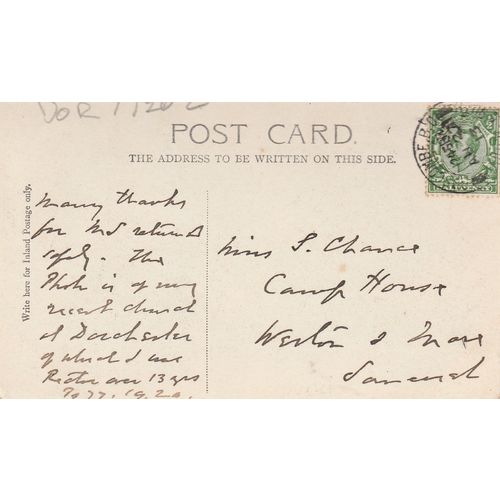 POST CARD.
THE ADDRESS TO BE WRITTEN ON THIS SIDE.
Write here for Inland Postage only.
Many thanks
for MS returned
safely. The
Photo is of my
recent church
at Dorchester
of which I was
Rector over 13 yrs
Miss S. Chance
Camp House
Weston S Mare
Somerset